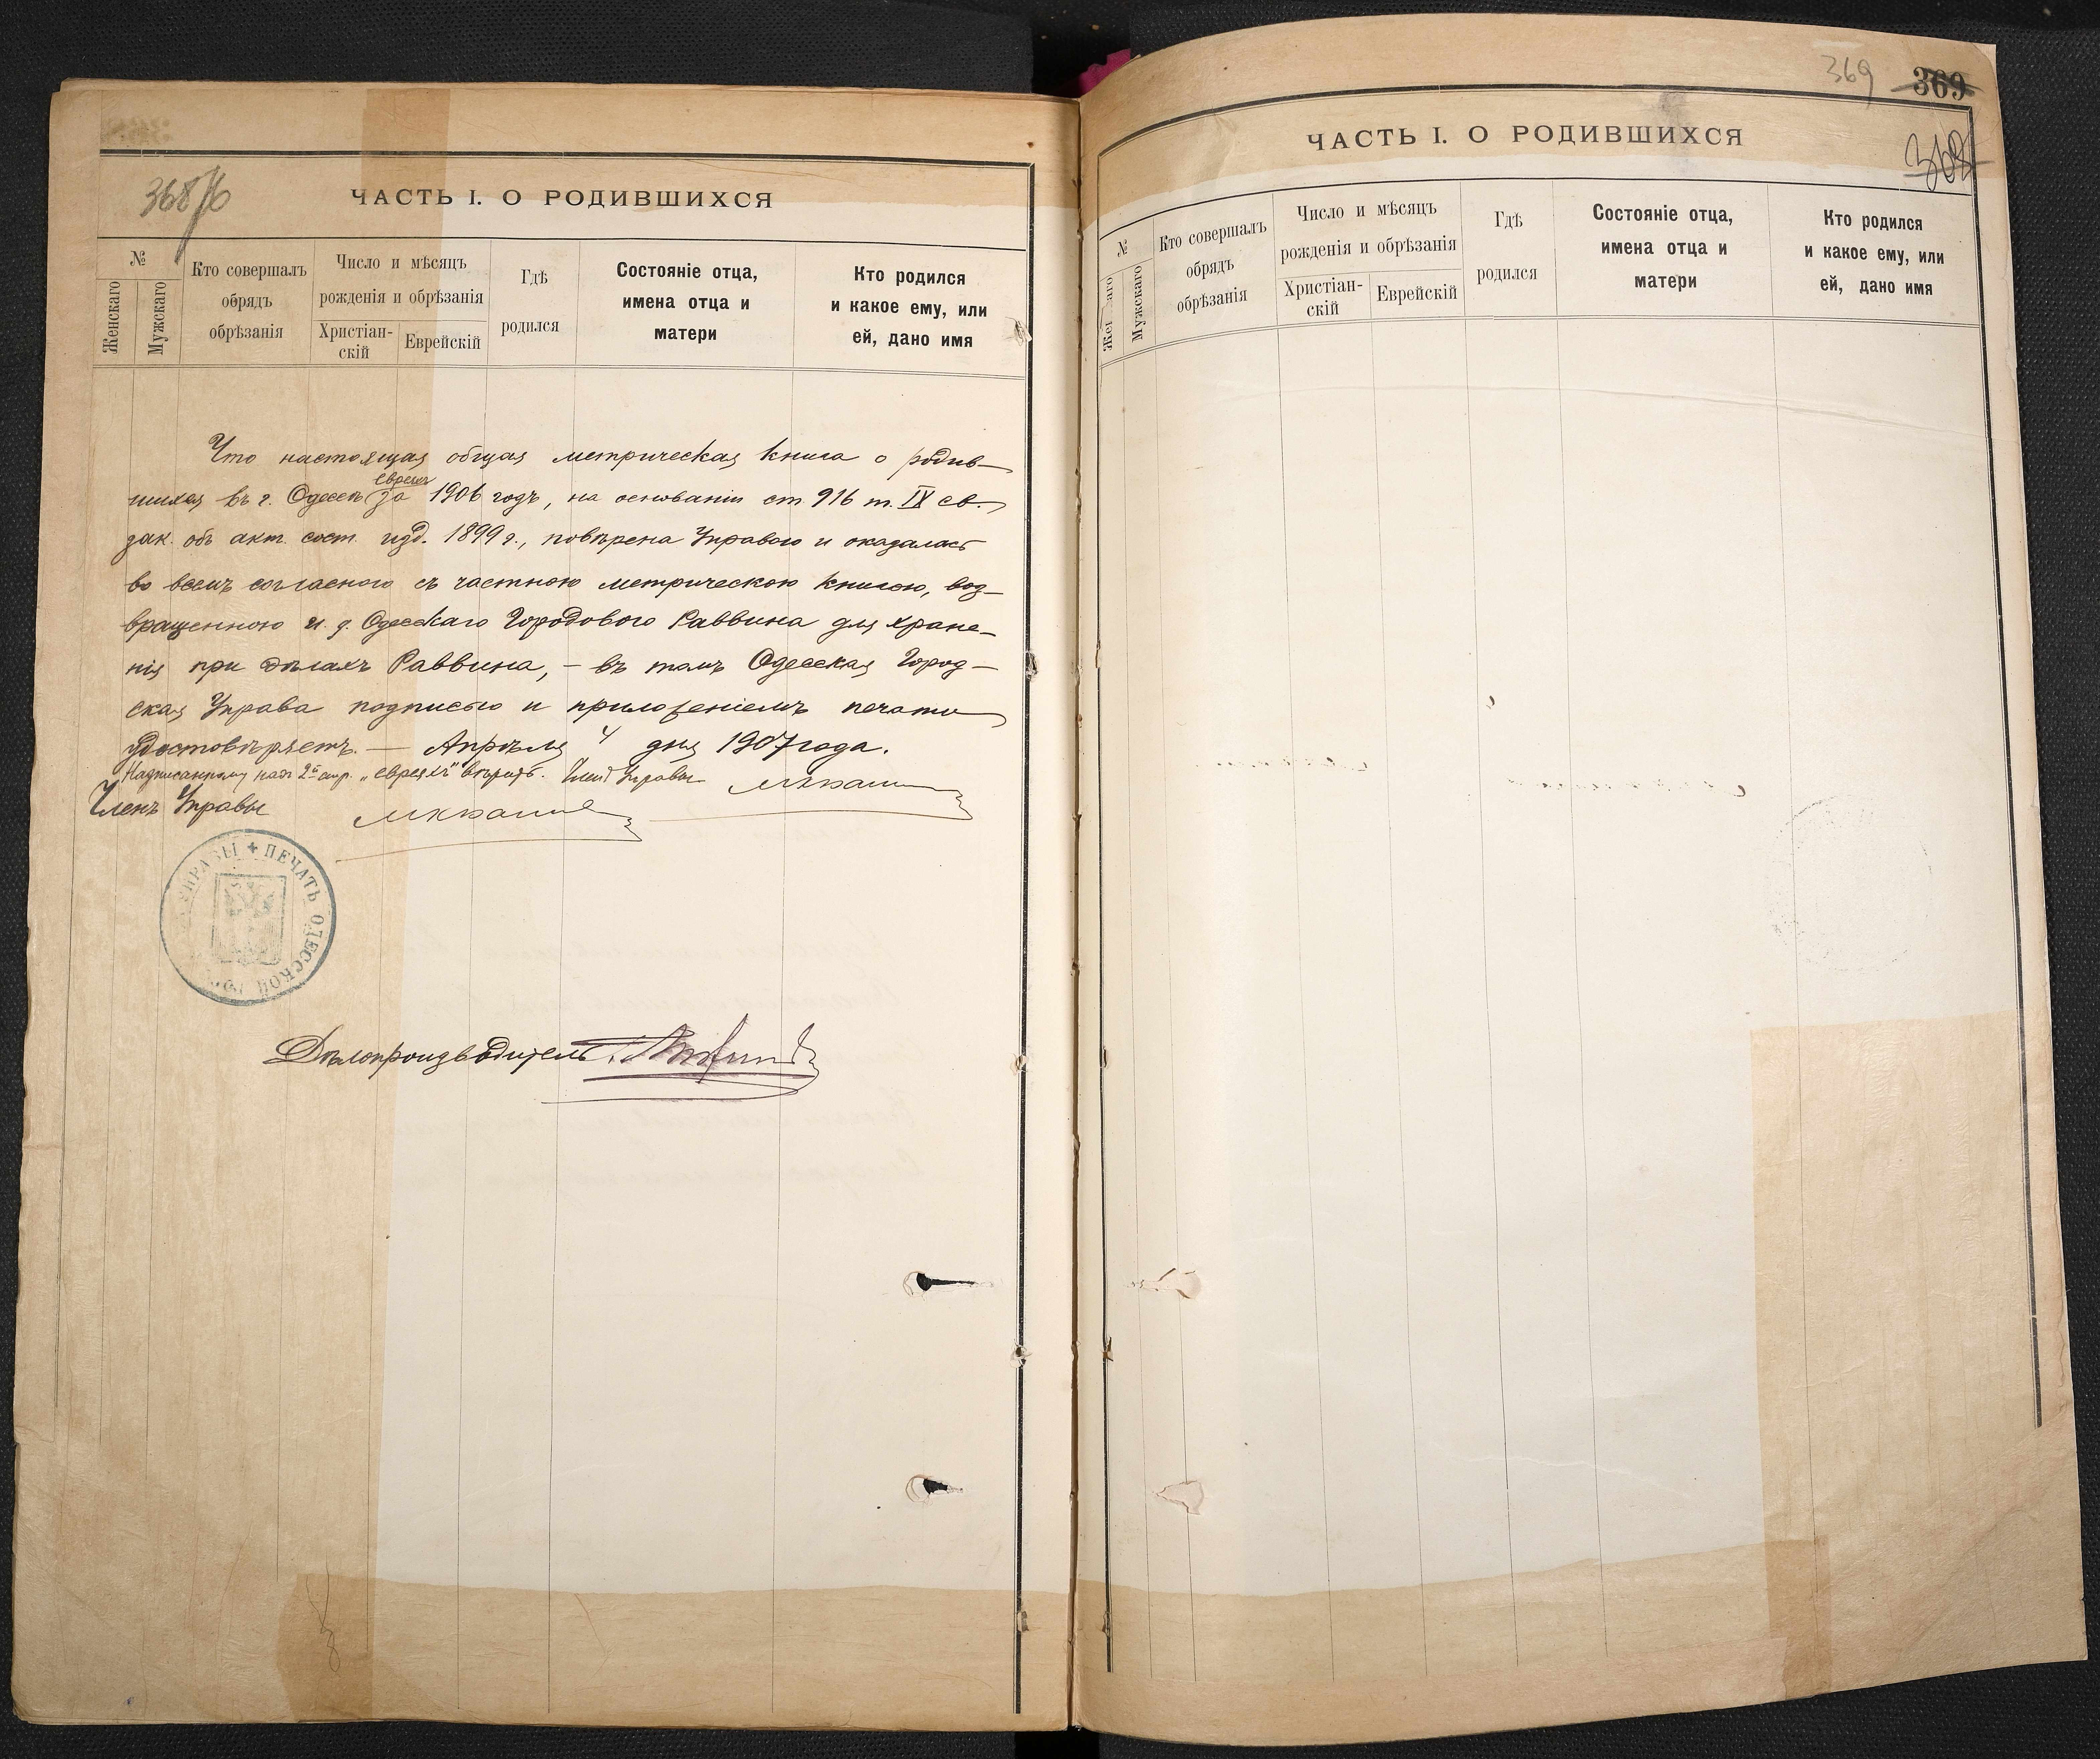 368/б
ЧАСТЬ I. О РОДИВШИХСЯ
№
Женскаго
Мужскаго
Кто совершалъ
обрядъ
обрѣзанія
Число и мѣсяцъ
рожденія и обрѣзанія
Христіан-
скій
Еврейскій
Гдѣ
родился
Состояніе отца,
имена отца и
матери
Кто родился
и какое ему, или
ей, дано имя
Что настоящая общая метрическая книга о родив-
евреяхъ
шихся въ г. Одессѣ за 1906 годъ, на основаніи ст. 916 т. IX св.
зак. объ акт. сост. изд. 1899 г., повѣрена Управою и оказалась
во всемъ согласною съ частною метрическою книгою, воз-
вращенною и. д. Одесскаго Городового Раввина для хране-
нія при дѣлахъ Раввина, – въ томъ Одесская Город-
ская Управа подписью и приложеніемъ печати
удостовѣряетъ. — Апрѣля 4 дня 1907 года.
Надписанному надъ 2й стр. „евреяхъ" вѣрить. Членъ Управы
Членъ Управы
УПРАВЫ + ПЕЧАТЬ ОДЕССКОЙ ГОР
Дѣлопроизводитель
369
369
ЧАСТЬ I. О РОДИВШИХСЯ
№
Мужскаго
Кто совершалъ
обрядъ
обрѣзанія
Число и мѣсяцъ
рожденія и обрѣзанія
Христіан-
скій
Еврейскій
Гдѣ
родился
Состояніе отца,
имена отца и
матери
Кто родился
и какое ему, или
ей, дано имя